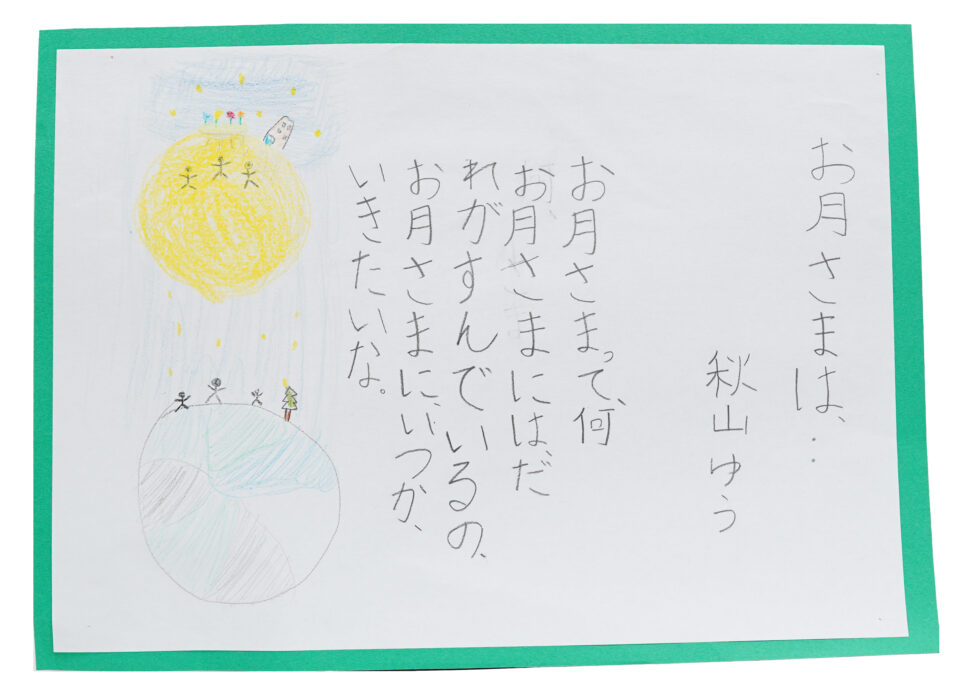 お月さまは、…
秋山ゆう
お月さまって、何
お月さまには、だ
れがすんでいるの、
お月さまに、いつか、
いきたいな。